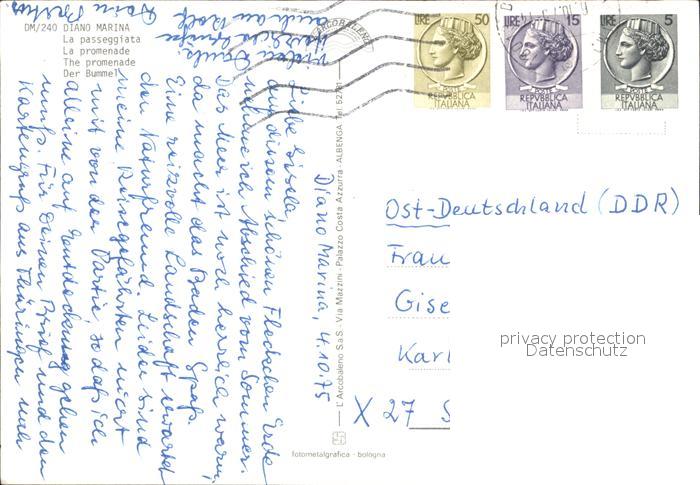 DM/240 DIANO MARINA
La passeggiata
La promenade
The promenade
Der Bummel
Diano Marina, 4.10.75
Liebe Gisela,
auf diesem schönen Fleckchen Erde
nehme ich Abschied vom Sommer.
Das Meer ist noch herrlich warm,
da macht das Baden Spaß.
Eine reizvolle Landschaft erwartet
den Naturfreund. Leider sind
meine Reisegefährten nicht
mit von der Partie, so daß ich
alleine auf Entdeckung gehen
muß. Für Deinen Brief und den
Kartengruß aus Thüringen noch
vielen Dank.
Herzliche Grüße
auch an
Deine
L'Arcobaleno S.a.S. Via Mazzini - Palazzo Costa Azzurra - ALBENGA
fotometalgrafica - bologna
ARCOBALENO
LIRE 50
POSTE
REPVBBLICA
ITALIANA
LIRE 15
POSTE
REPVBBLICA
ITALIANA
LIRE 5
POSTE
REPVBBLICA
ITALIANA
Ost-Deutschland (DDR)
Frau
Gise
Karl
X 27 S
privacy protection
Datenschutz